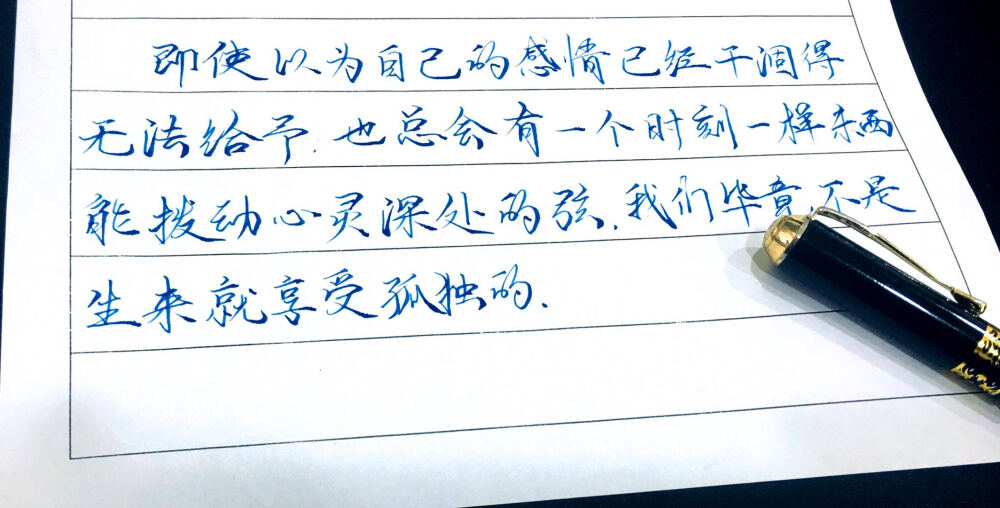 即使以为自己的感情已经干涸得
无法给予.也总会有一个时刻一样东西
能拨动心灵深处的弦.我们毕竟不是
生来就享受孤独的.